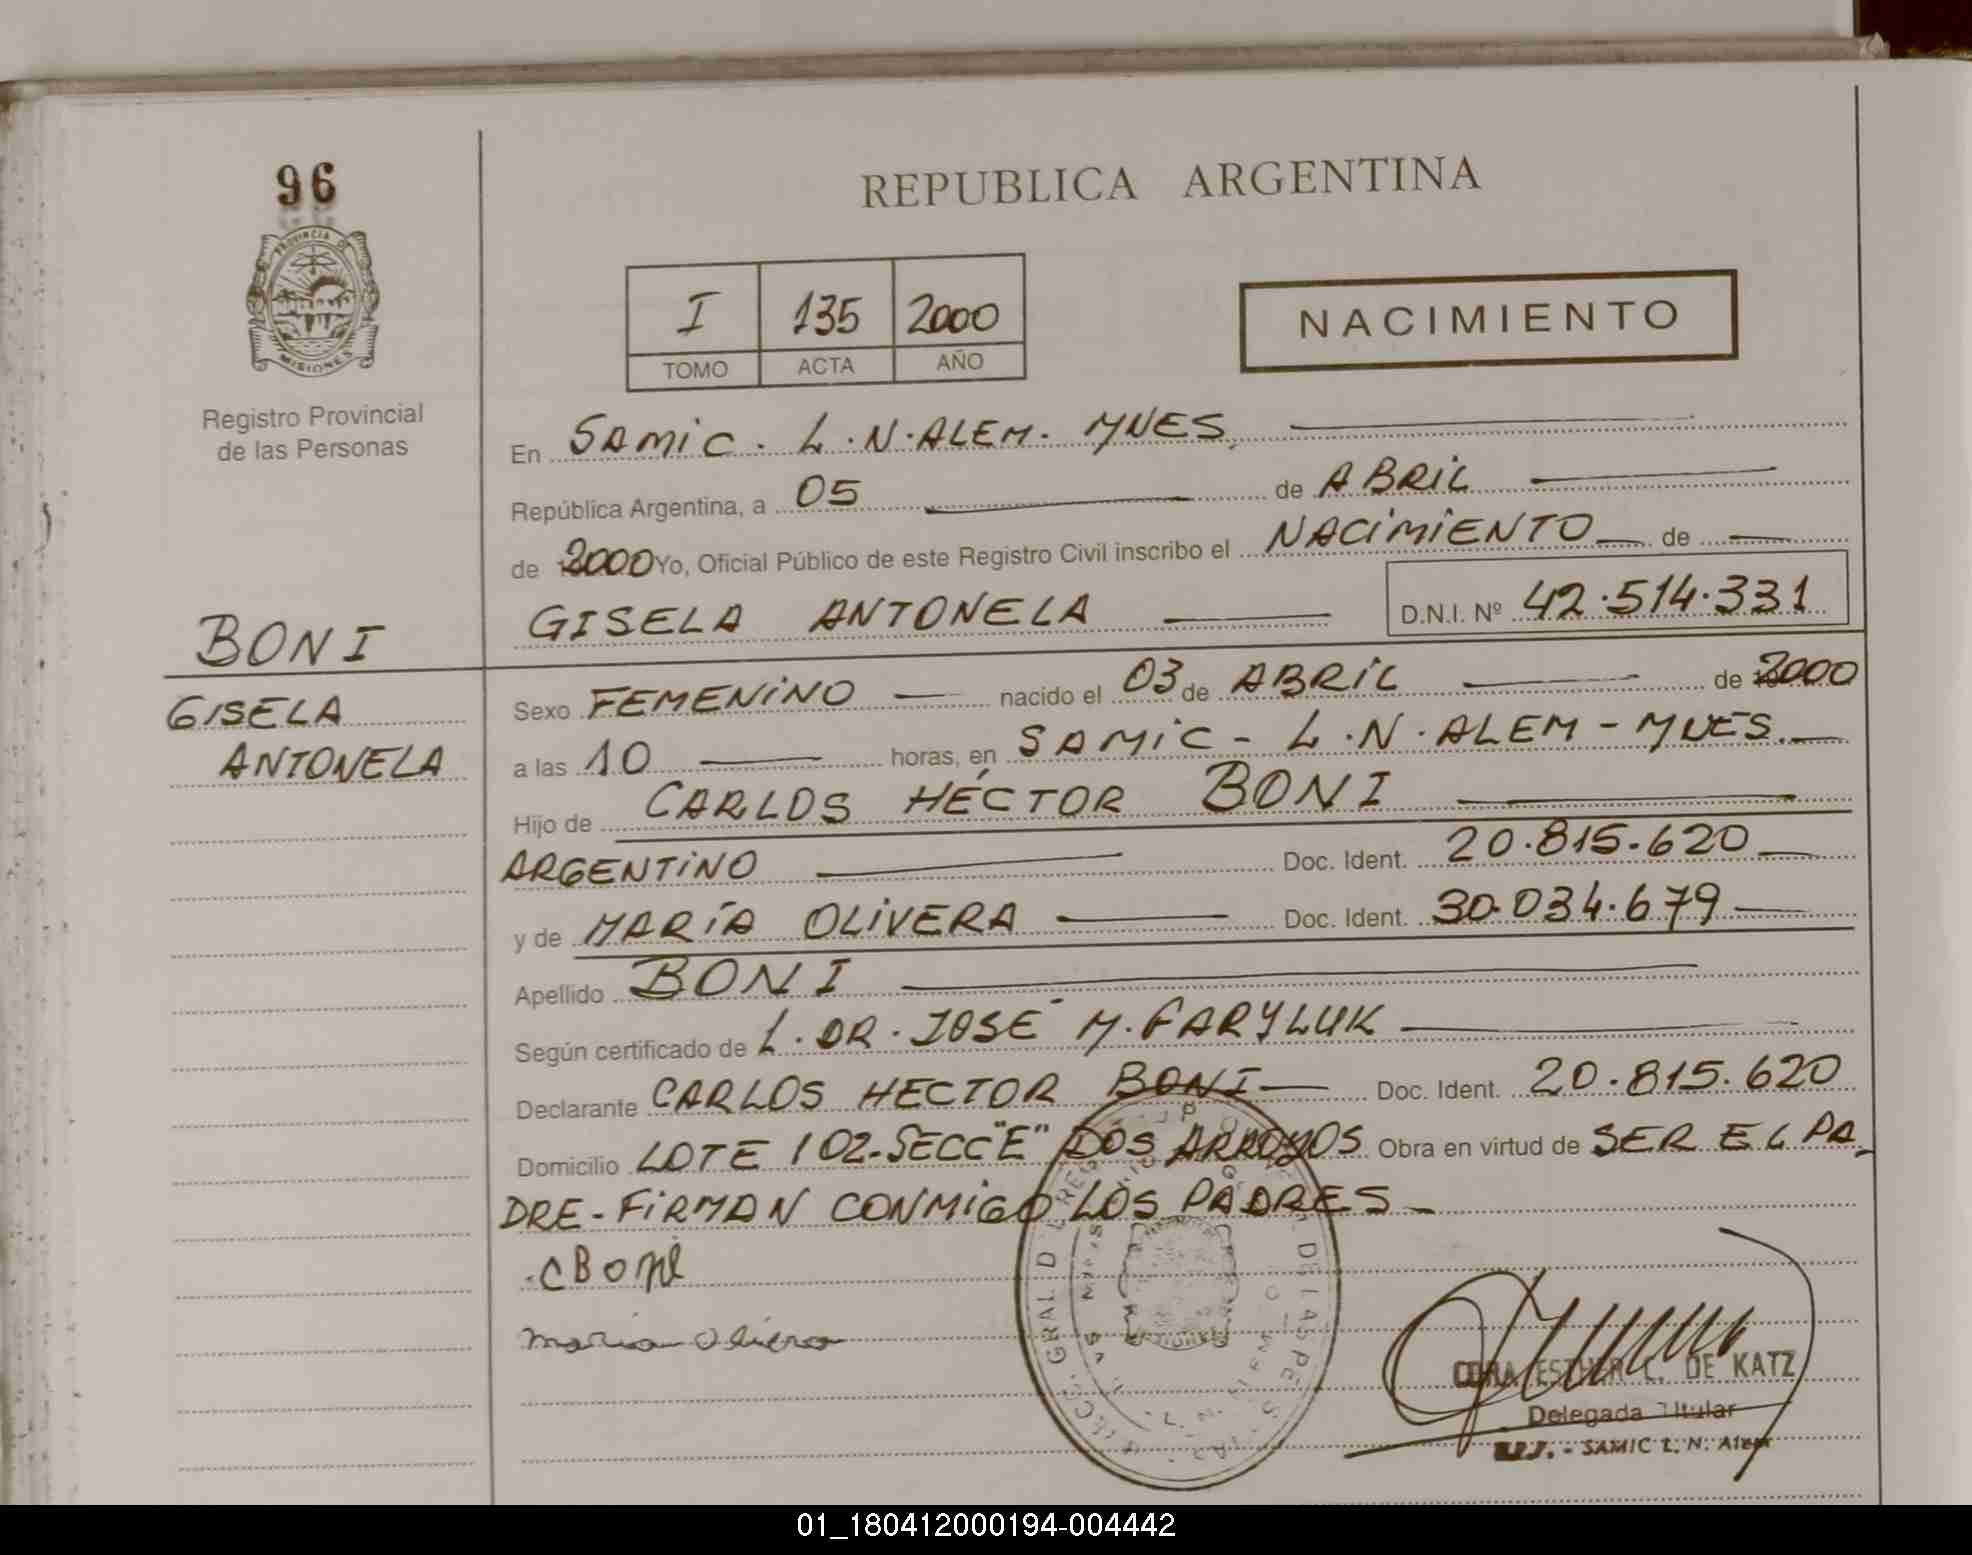 96
PROVINCIA DE
MISIONES
Registro Provincial
de las Personas
BONI
GISELA
ANTONELA
REPUBLICA ARGENTINA
I 135 2000
TOMO ACTA AÑO
NACIMIENTO
En SAMIC. L.N.ALEM. MNES.
República Argentina, a 05 de ABRIL
de 2000 Yo, Oficial Público de este Registro Civil inscribo el NACIMIENTO de
GISELA ANTONELA D.N.I. Nº 42.514.331
Sexo FEMENINO nacido el 03 de ABRIL de 2000
a las 10 horas, en SAMIC - L.N.ALEM - MNES.
Hijo de CARLOS HÉCTOR BONI
ARGENTINO Doc. Ident. 20.815.620
y de MARÍA OLIVERA Doc. Ident. 30.034.679
Apellido BONI
Según certificado de L. DR. JOSÉ M. FARYLUK
Declarante CARLOS HECTOR BONI Doc. Ident. 20.815.620
Domicilio LOTE 102-SECC"E" DOS ARROYOS Obra en virtud de SER EL PA
DRE - FIRMAN CONMIGO LOS PADRES -
C Boni
Maria Olivera
CORA ESTHER L. DE KATZ
Delegada Titular
SAMIC L. N. Alem
01_180412000194-004442